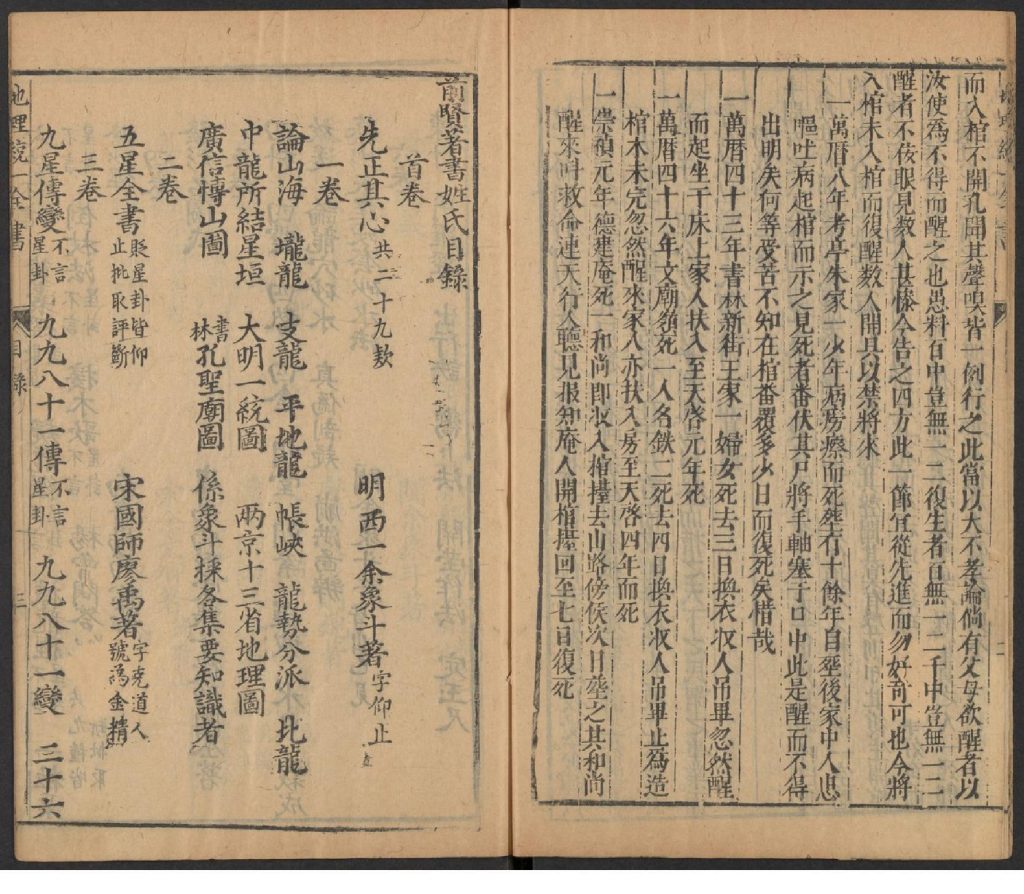 而入棺不開孔聞其聲嗅皆一例行之此當以大不孝論倘有父母欲醒者以
汝使為不得而醒之也愚料百中豈無一二復生者百無一二千中豈無一二
醒者不依眼見教人甚慘今告之四方此一節宜從先進而勿好奇可也今將
入棺未入棺而復醒數人開具以禁將來
一萬曆八年考亭朱家一少年病房癆而死塟有十餘年自塟後家中人患
嘔吐病起棺而示之見死者番伏其尸將手軸塞于口中此是醒而不得
出明矣何等受苦不知在棺番覆多少日而復死矣惜哉
一萬曆四十三年書林新街王家一婦女死去三日換衣収人吊畢忽然醒
而起坐于床上家人扶入至天啓元年死
一萬曆四十六年文廟須死一人名鉄二死去四日換衣収人吊畢止為造
棺木未完忽然醒來家人亦扶入房至天啓四年而死
一崇禎元年德建庵死一和尚即収入棺擡去山路傍俟次日塟之其和尚
醒來呌救命連天行人聽見报知庵人開棺擡回至七日復死
前賢著書姓氏目錄
首卷
先正其心 共二十九款 明西一余象斗著 字仰止
一卷
論山海 壠龍 支龍 平地龍 帳峽 龍勢分派 北龍
中龍所結星垣 大明一統圖 兩京十三省地理圖
廣信博山圖 書林孔聖廟圖 係象斗採各集要知識者
二卷
五星全書 貶星卦皆仰止批取評斷 宋國師廖禹著 字克道人號為金精
三卷
九星傳變 不言星卦 九九八十一傳 不言星卦 九九八十一變 三十六
地理統一全書 目錄 三